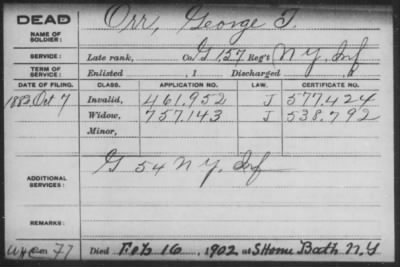 DEAD
Orr, George T.
NAME OF SOLDIER:
SERVICE: Late rank, Co. G 157 Reg't N.Y. Inf
TERM OF SERVICE: Enlisted , 1 Discharged , 1
DATE OF FILING. CLASS. APPLICATION NO. LAW. CERTIFICATE NO.
1882 Oct 7 Invalid, 461.952 J 577.424
Widow, 757.143 J 538.792
Minor,
G 54 N.Y. Inf
ADDITIONAL SERVICES:
REMARKS:
77 Died Feb 16, 1902 at S Home Bath N.Y